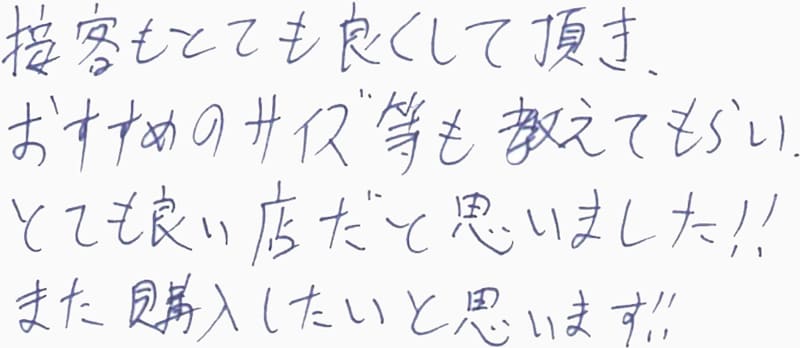 接客もとても良くして頂き、
おすすめのサイズ等も教えてもらい、
とても良い店だと思いました!!
また購入したいと思います!!